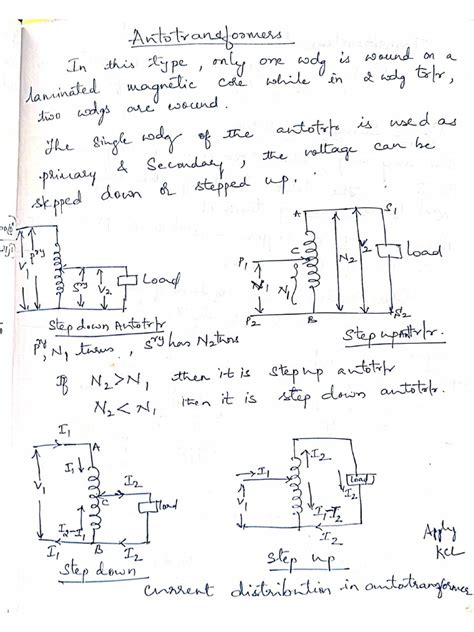 Autotransformers
In this type, only one wdg is wound on a
laminated magnetic core while in 2 wdg tr/r,
two wdgs are wound.
The single wdg of the autotr/r is used as
primary & secondary, the voltage can be
stepped down or stepped up.
A S1
P1 C N1 N1 N2 V2 Load
V1 Pry Sry V2 Load
P2 B S2
Step down Autotr/r
Step up Autotr/r.
Pry, N1 turns, Sry has N2 turns
If N2>N1 then it is step up autotr/r
N2<N1 then it is step down autotr/r.
I1 A
I1 I2
V1 C load
I2-I1
I1 B I2
Step down
I1 I2 load
V1 I2
I1-I2
I2
Step up
Apply
KCL
current distribution in autotransformer